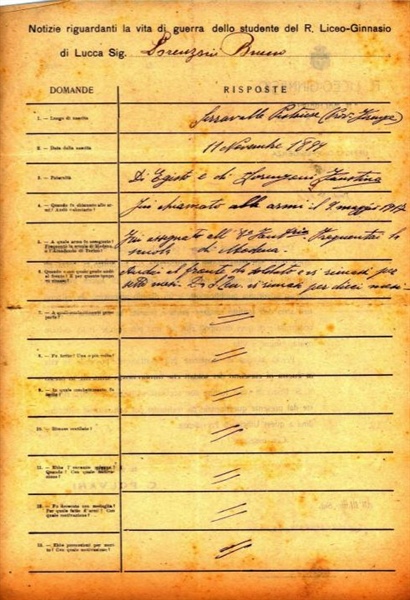 Notizie riguardanti la vita di guerra dello studente del R. Liceo-Ginnasio
di Lucca Sig. Lorenzini Bruno
DOMANDE
RISPOSTE
1. — Luogo di nascita
Serravalle Pistoiese (Prov. Firenze)
2. — Data della nascita
11 Novembre
3. — Paternità
Di Egisto e di Lorenzini Faustina
4. — Quando fu chiamato alle armi? Andò volontario?
Fui chiamato alle armi il 2 maggio 1917
5. — A quale arma fu assegnato? Frequentò la scuola di Modena o l'Accademia di Torino?
Fui assegnato all' Frequentai la
scuola di Modena.
6. — Quando e con quale grado andò al fronte? E per quanto tempo vi rimase?
Andai al fronte da soldato e vi rimasi per
mesi. vi rimasi per dieci mesi.
7. — A quali combattimenti prese parte?
8. — Fu ferito? Una o più volte?
9. — In quale combattimento fu ferito?
10. — Rimase mutilato?
11. — Ebbe
quando? Con quale motivazione?
12. — Fu decorato con medaglia? Per quale fatto d'armi? Con quale motivazione?
13. — Ebbe promozioni per merito? Con quale motivazione?